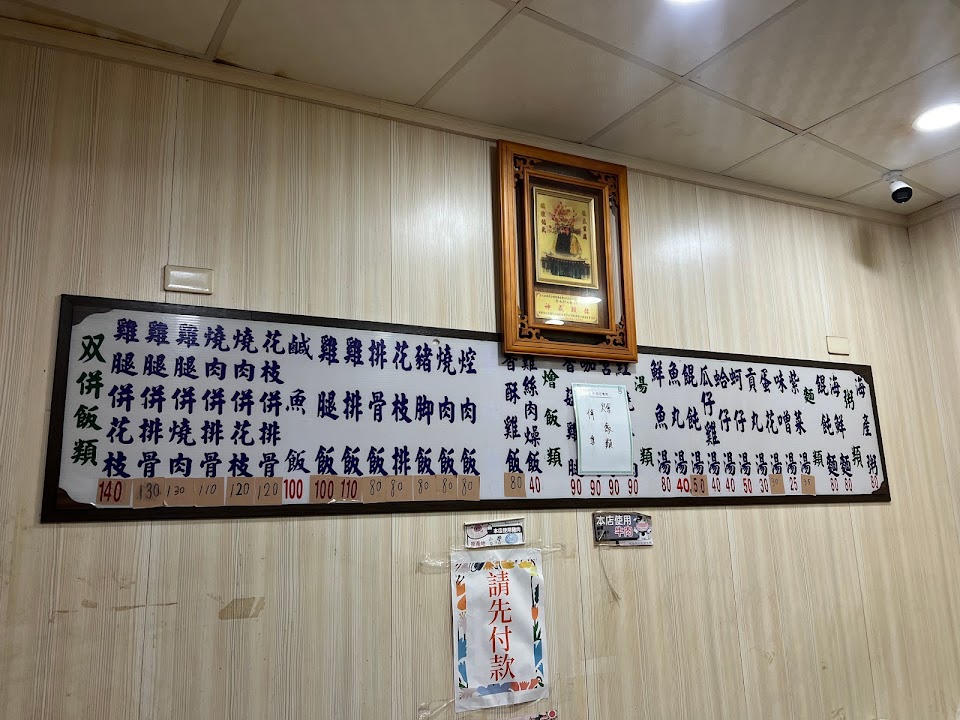 双併飯類
雞腿併花枝 140
雞腿併排骨 130
雞腿併燒肉 130
燒肉併排骨 110
燒肉併花枝 120
花枝併排骨 120
鹹魚飯 100
雞腿飯 100
雞排飯 110
排骨飯 80
花枝排 80
豬脚飯 80
燒肉飯 80
焢肉飯 80
香酥雞飯 80
雞絲肉燥飯 40
燴飯類
90
90
90
90
湯類
鮮魚湯 80
魚丸湯 40
餛飩湯 50
瓜仔雞湯 40
蛤仔湯 40
蚵仔湯 50
貢丸湯 30
蛋花湯 30
味噌湯 25
紫菜湯 35
麵類
餛飩麵 80
海鮮麵 80
粥類
海產粥 80
本店使用豬肉
本店使用
牛肉
請先付款